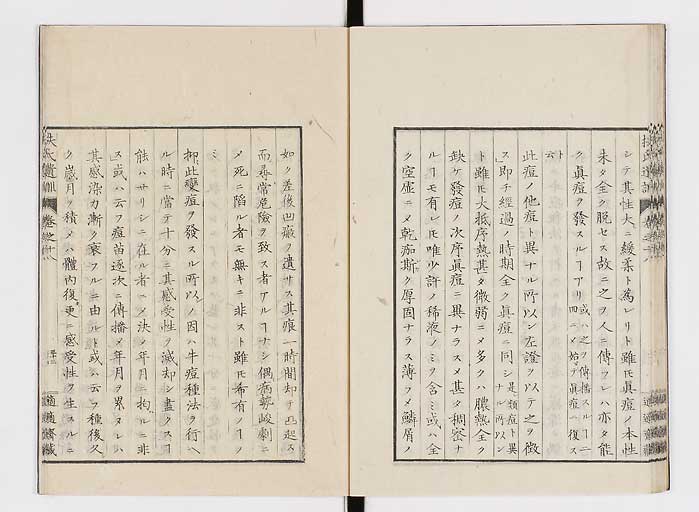 シテ其性大ニ緩柔ト為レリト雖𪜈眞痘ノ本性
未タ全ク脱セス故ニ之ヲ人ニ傳フレハ亦タ能
ク眞痘ヲ發スルヿアリ
或ハ之ヲ傳播スルヿ二三
四ニメ始テ眞痘ニ復ス
ト云
此痘ノ他症ト異ナル所以ン左證ヲ以テ之ヲ徴
ス即チ經過ノ時期全ク眞痘ニ同シ
是類痘ト異
ナル所以ン
ト雖𪜈大抵序熱甚タ微弱ニメ多クハ膿熱全ク
缺ケ發痘ノ次序眞痘ニ異ナラスメ甚タ稠密ナ
ルヿモ有レ𪜈唯少許ノ稀液ノミヲ含ミ或ハ全
ク空虚ニメ乾痂斯ク厚固ナラス薄フメ鱗屑ノ
如ク差後凹瘢ヲ遺サス其痕一時間却テ凸起ス
而尋常危險ヲ致ス者アルヿナシ偶病勢峻劇ニ
メ死ニ陷ル者モ無キニ非スト雖𪜈希有ノヿ
ノミ
抑此變痘ヲ發スル所以ノ因ハ牛痘種法ヲ行ヘ
ル時ニ當テ十分ニ其感受性ヲ滅却シ盡クスヿ
能ハサリシニ在ル者ニメ決メ年月ニ拘ルニ非
ス或ハ云フ痘苗逐次ニ傳播メ年月ヲ累タレハ
其感染力漸ク衰フルニ由ルト或ハ云フ種後久
ク歲月ヲ積メハ體内復更ニ感受性ヲ生スルニ
扶氏遺訓
卷之十八
適適齋藏